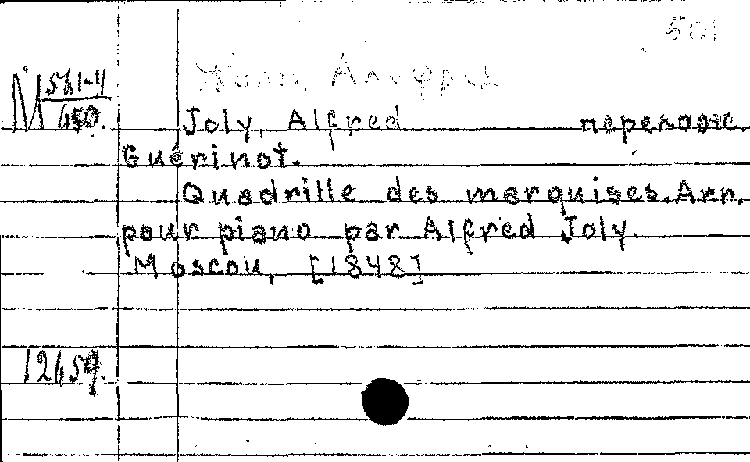 501
Жоли, Альфред
М 561-11
450.
Joly, Alfred перелож.
Guérinot.
Quadrille des marquises. Arr.
pour piano par Alfred Joly.
Moscou, [1848]
12659.